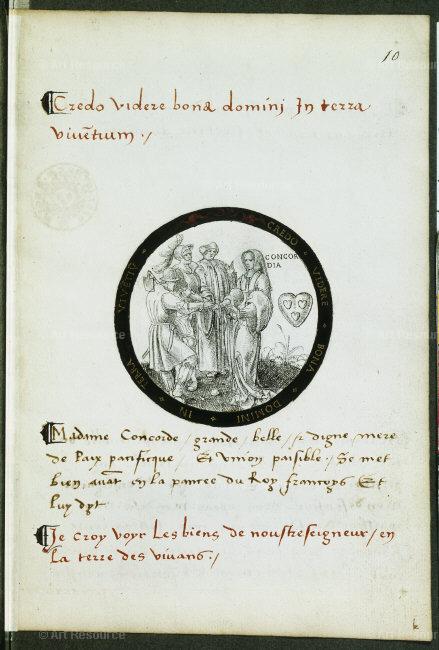 10
Credo videre bona dominj In terra
vivẽtium ./
CREDO · VIDERE · BONA · DOMINI · IN · TERRA · VIVĒTIV̄
CONCOR
DIA
Madame Concorde / grande / belle / et digne mere
de Paix pacificque / Et vnion paisible / Se met
bien auãt en la pancee du Roy francoys Et
luy dyt
Je croy voyr Les biens de noustre seigneur / en
La terre des vivans ./
© Art Resource